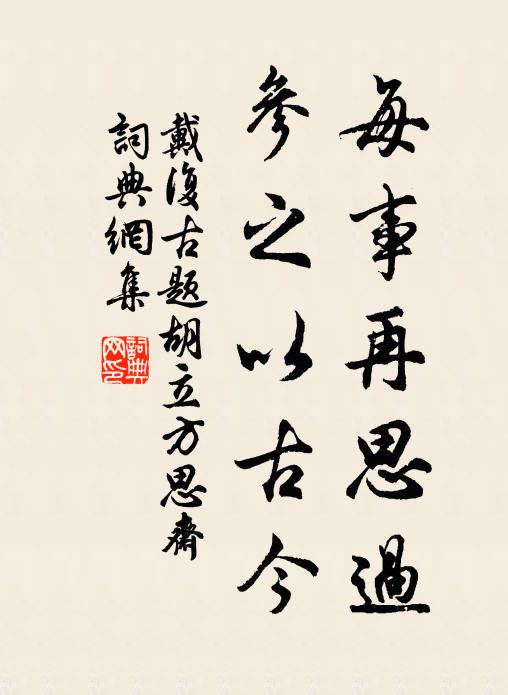 每事再思過
參之以古今
戴復古題胡立方思齋
詞典網集
詞典網印